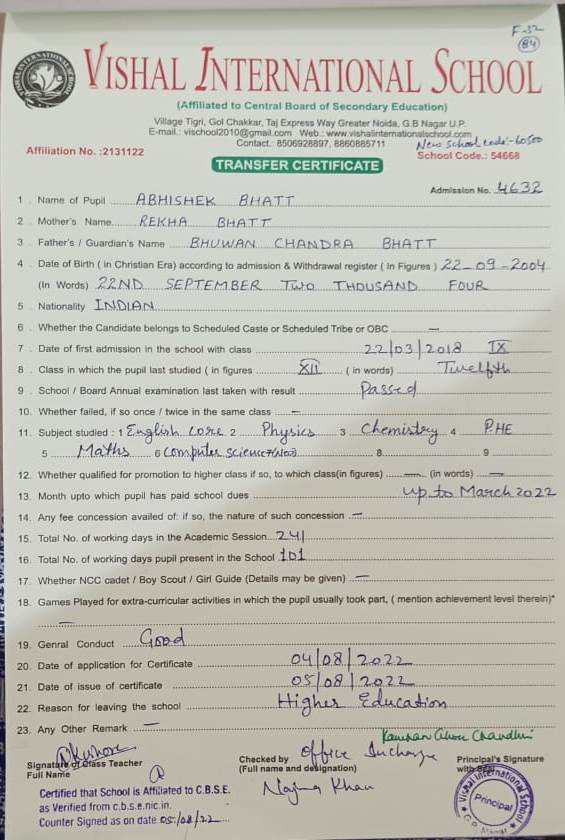 F-32
84
VISHAL INTERNATIONAL SCHOOL
(Affiliated to Central Board of Secondary Education)
Village Tigri, Gol Chakkar, Taj Express Way Greater Noida, G.B Nagar U.P.
E-mail.: vischool2010@gmail.com Web.: www.vishalinternationalschool.com
Contact.: 8506928897, 8860885711
New school code:- 60500
Affiliation No. :2131122
School Code.: 54668
TRANSFER CERTIFICATE
Admission No. 4632
1 . Name of Pupil ABHISHEK BHATT
2 . Mother's Name REKHA BHATT
3 . Father's / Guardian's Name BHUWAN CHANDRA BHATT
4 . Date of Birth ( in Christian Era) according to admission & Withdrawal register ( In Figures ) 22-09-2004
(In Words) 22ND SEPTEMBER TWO THOUSAND FOUR
5 . Nationality INDIAN
6 . Whether the Candidate belongs to Scheduled Caste or Scheduled Tribe or OBC —
7 . Date of first admission in the school with class 22/03/2018 IX
8 . Class in which the pupil last studied ( in figures XII ( in words) Twelfth
9 . School / Board Annual examination last taken with result Passed
10. Whether failed, if so once / twice in the same class —
11. Subject studied : 1 English core 2 Physics 3 Chemistry 4 P.HE
5 Maths 6 Computer science 7 8 9
12. Whether qualified for promotion to higher class if so, to which class(in figures) — (in words) —
13. Month upto which pupil has paid school dues up to March 2022
14. Any fee concession availed of: if so, the nature of such concession —
15. Total No. of working days in the Academic Session 241
16. Total No. of working days pupil present in the School 101
17. Whether NCC cadet / Boy Scout / Girl Guide (Details may be given) —
18. Games Played for extra-curricular activities in which the pupil usually took part, ( mention achievement level therein)*
—
19. Genral Conduct Good
20. Date of application for Certificate 04/08/2022
21. Date of issue of certificate 05/08/2022
22. Reason for leaving the school Higher Education
23. Any Other Remark —
Signature of Class Teacher
Full Name
Checked by office Incharge
(Full name and designation)
Najma Khan
Principal's Signature
with Seal
Vishal International School
Principal
Certified that School is Affiliated to C.B.S.E.
as Verified from c.b.s.e.nic.in.
Counter Signed as on date 05/08/22